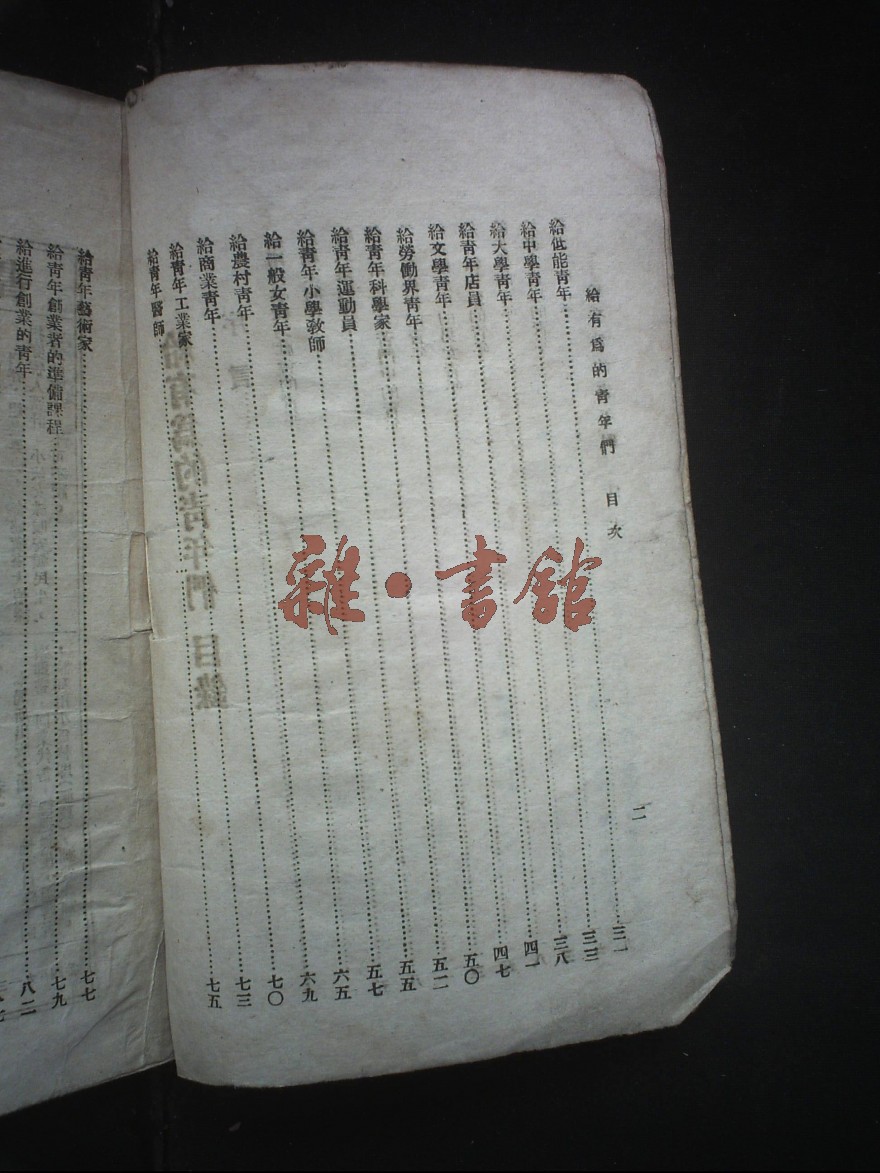 給有爲的青年們 目次 二
給低能青年……三一
給中學青年……三三
給大學青年……三八
給青年店員……四一
給文學青年……四七
給勞働界青年……五〇
給青年科學家……五二
給青年運動員……五五
給青年小學教師……五七
給一般女青年……六五
給農村青年……六九
給商業青年……七〇
給青年工業家……七三
給青年醫師……七五
給青年藝術家……七七
給青年創業者的準備課程……七九
給進行創業的青年……八二
雜·書館